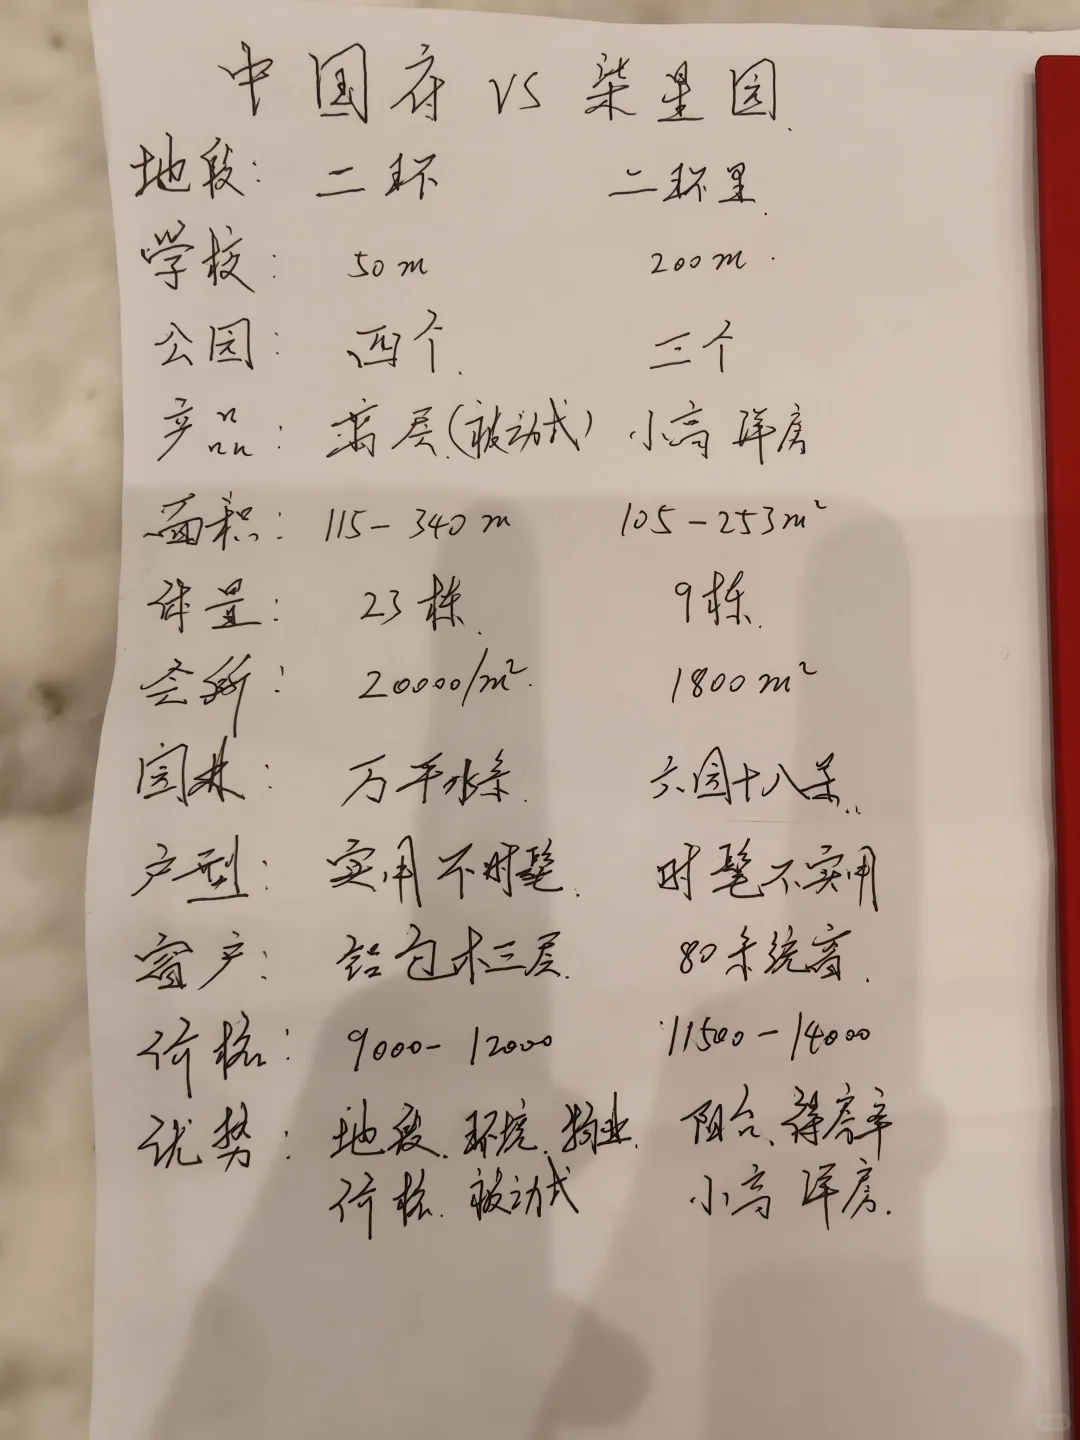 中国府 VS 柒星园
地段: 二环 二环里
学校: 50m 200m
公园: 四个 三个
产品: 高层(被动式) 小高 洋房
面积: 115-340m 105-253m²
体量: 23栋 9栋
会所: 20000/m² 1800m²
园林: 万平水系 六园十八景
户型: 实用不时髦 时髦不实用
窗户: 铝包木三层 80系统窗
价格: 9000-12000 11500-14000
优势: 地段、环境、物业、 阳台、得房率
价格、被动式 小高 洋房